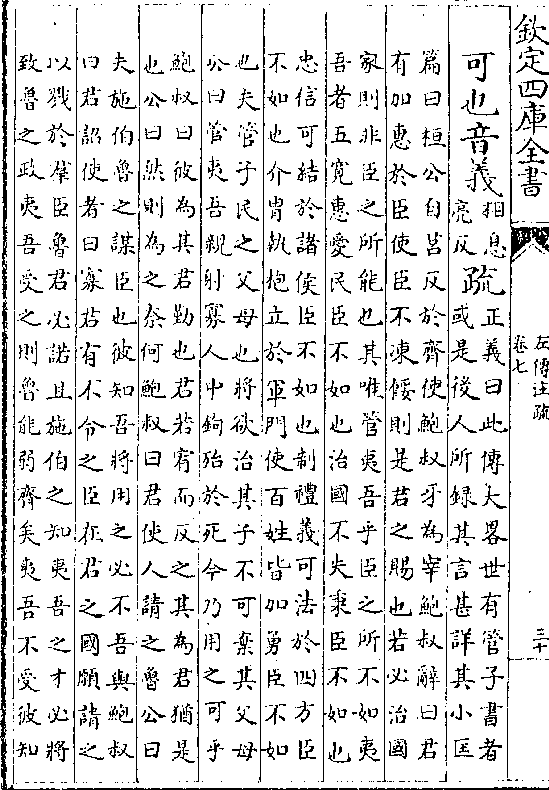 欽定四庫全書
左傳注疏
卷七
三十
可也音義相息亮反疏正義曰此傳大畧世有管子書者
或是後人所録其言甚詳其小匡
篇曰桓公自莒反於齊使鮑叔牙為宰鮑叔辭曰君
有加惠於臣使臣不凍餒則是君之賜也若必治國
家則非臣之所能也其唯管夷吾乎臣之所不如夷
吾者五寛惠愛民臣不如也治國不失秉臣不如也
忠信可結於諸侯臣不如也制禮義可法於四方臣
不如也介胄執抱立於軍門使百姓皆加勇臣不如
也夫管子民之父母也將欲治其子不可棄其父母
公曰管夷吾親射寡人中鉤殆於死今乃用之可乎
鮑叔曰彼為其君勤也君若宥而反之其為君猶是
也公曰然則為之奈何鮑叔曰君使人請之魯公曰
夫施伯魯之謀臣也彼知吾將用之必不吾與鮑叔
曰君詔使者曰寡君有不令之臣在君之國願請之
以戮於羣臣魯君必諾且施伯之知夷吾之才必將
致魯之政夷吾受之則魯能弱齊矣夷吾不受彼知